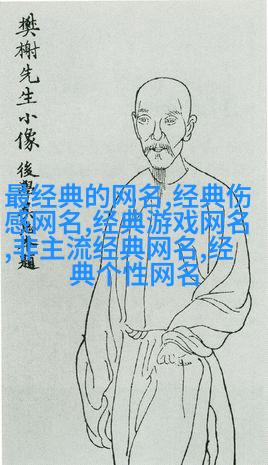 樊榭先生小像
後學題
最经典的网名,经典伤
感网名,经典游戏网名
,非主流经典网名,经
典个性网名